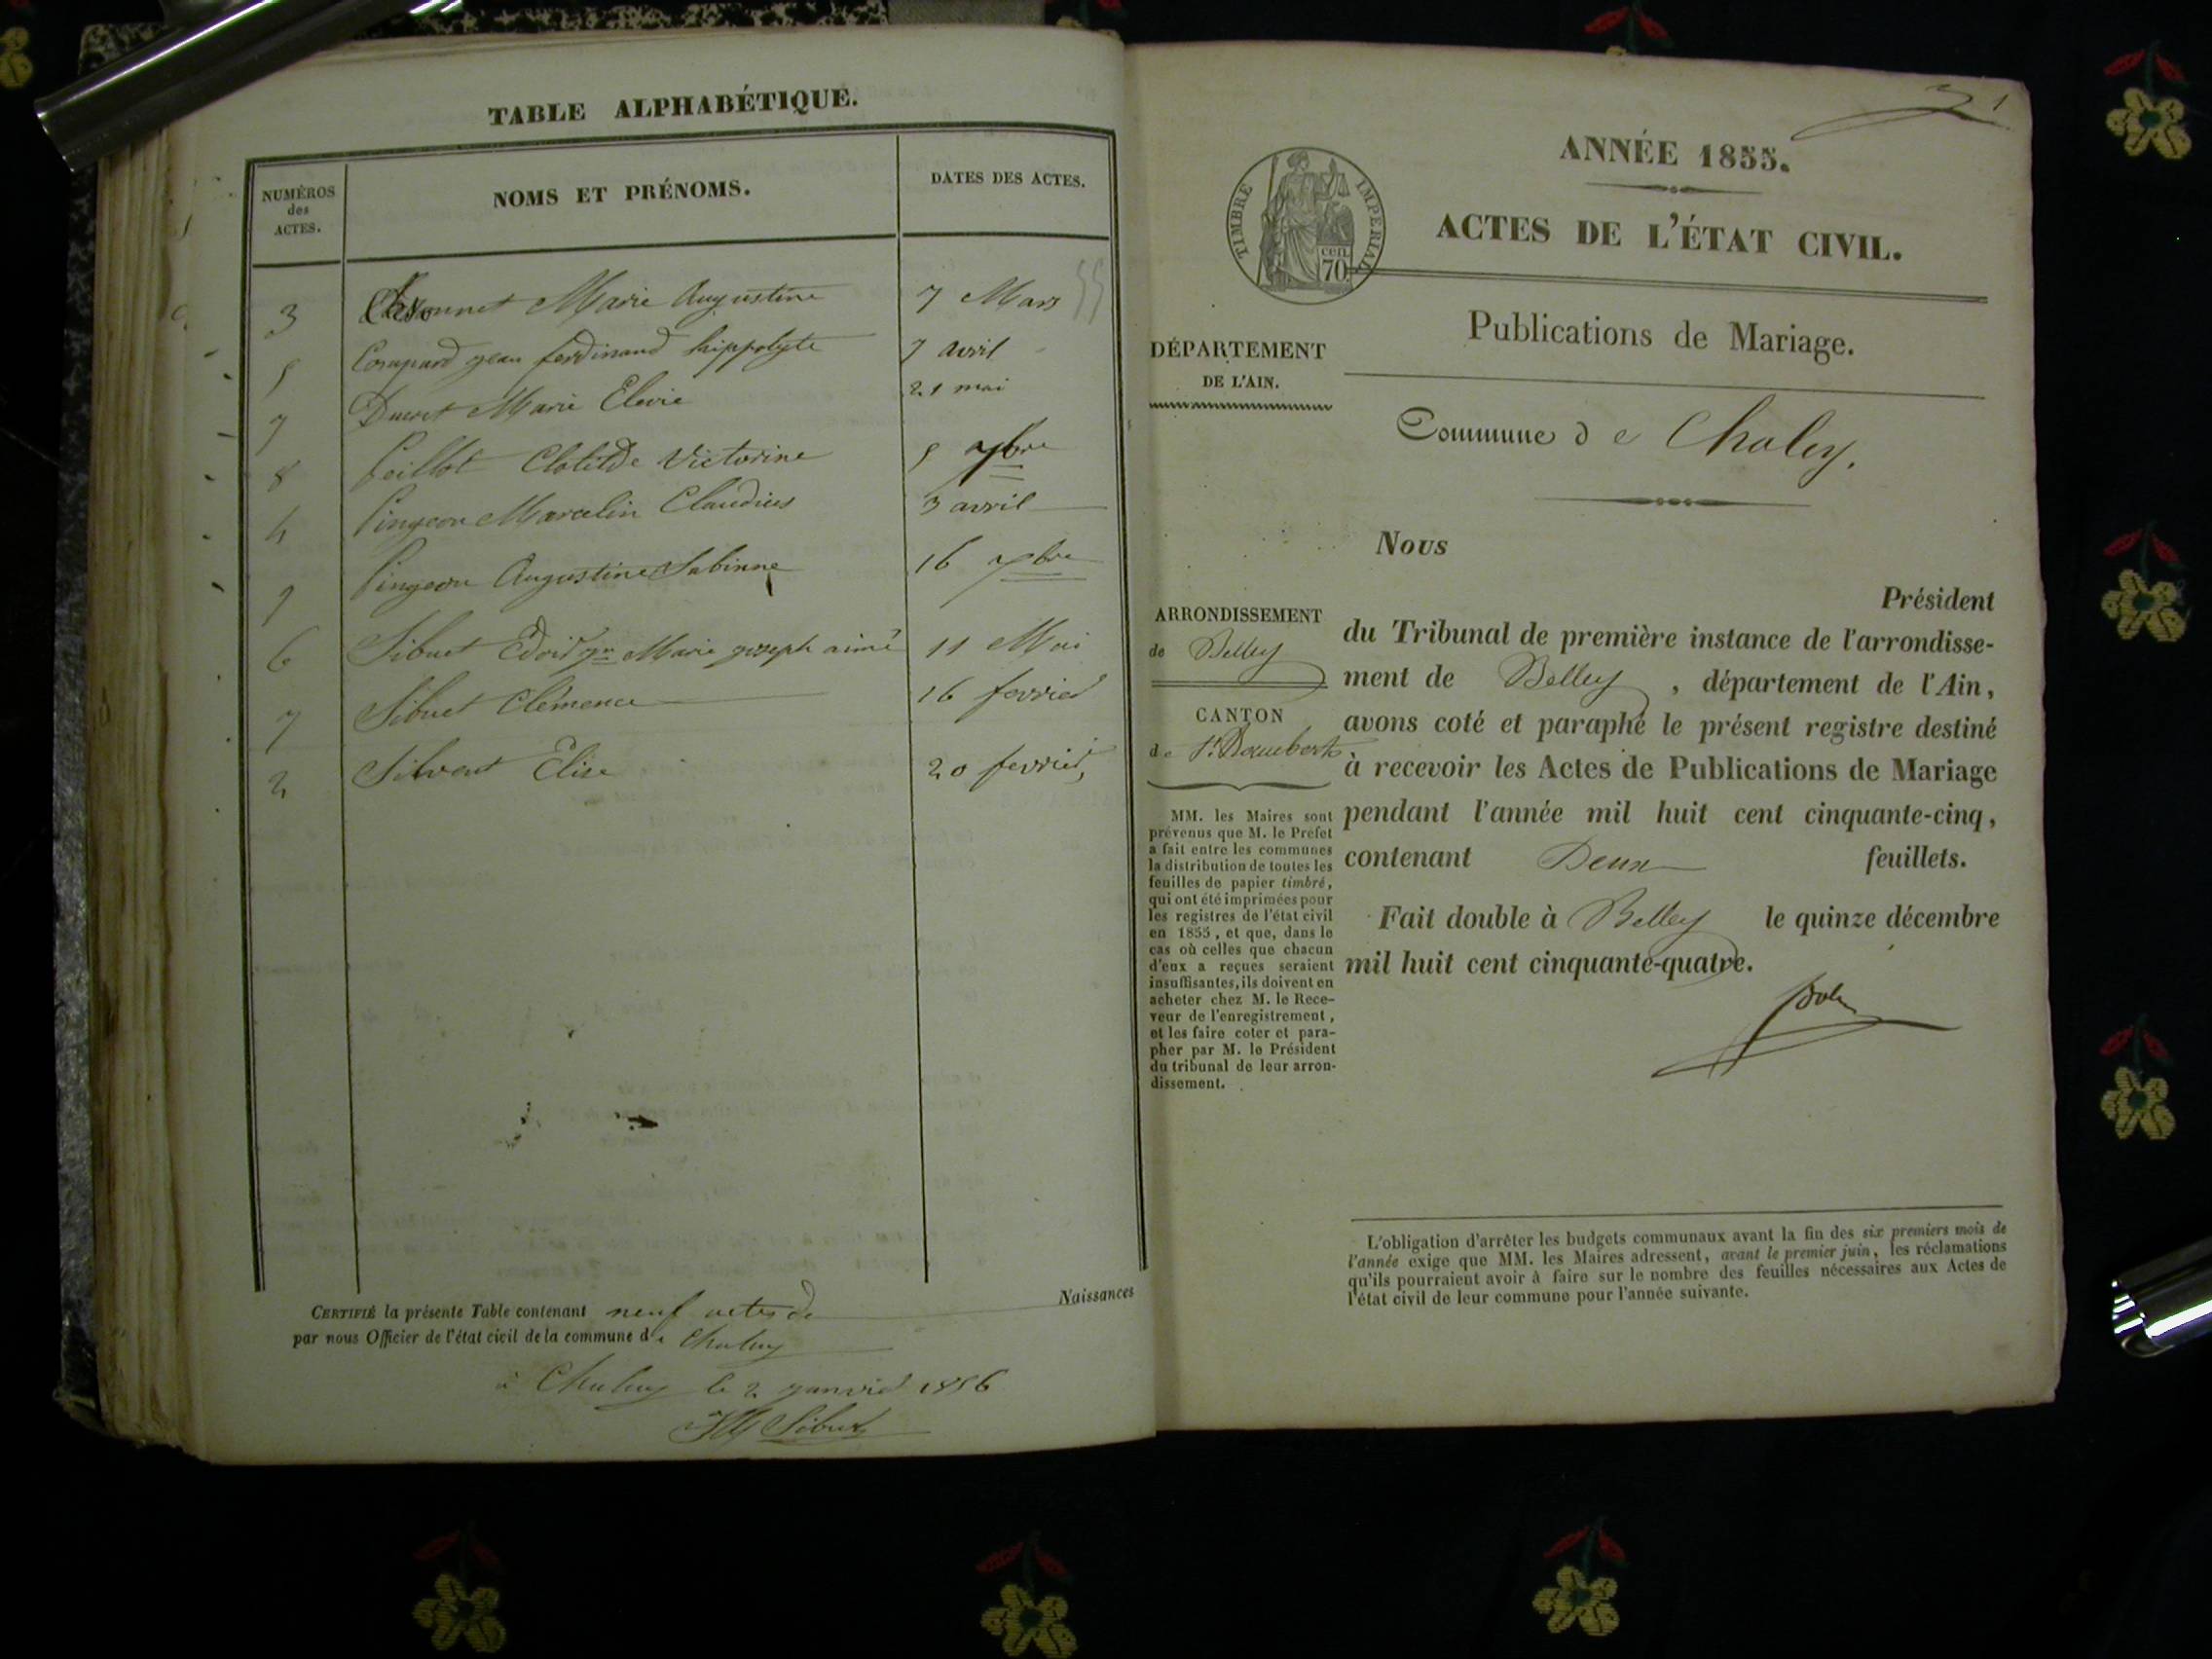 TABLE ALPHABÉTIQUE.
NUMÉROS des ACTES. NOMS ET PRÉNOMS. DATES DES ACTES.
3 Marie Augustine 7 Mars 55
5 Compard jean ferdinand hippolyte 7 avril
7 Ducret Marie Elevie 21 mai
8 Peillot Clotilde Victorine 5 7bre
4 Pingeon Marcelin Claudius 3 avril
9 Pingeon Augustine Sabinne 16 7bre
6 Sibuet Marie joseph aimé 11 Mai
1 Sibuet Clémence 16 fevrier
2 Silvent Elise 20 fevrier
CERTIFIÉ la présente Table contenant neuf actes de Naissances
par nous Officier de l'état civil de la commune de Chaley
à Chaley le 2 janvier 1856
Sibuet
1
ANNÉE 1855.
ACTES DE L'ÉTAT CIVIL.
TIMBRE IMPERIAL
cen. 70
Publications de Mariage.
DÉPARTEMENT
DE L'AIN.
Commune de Chaley.
ARRONDISSEMENT
de Belley
CANTON
de St. Rambert
MM. les Maires sont
prévenus que M. le Préfet
a fait entre les communes
la distribution de toutes les
feuilles de papier timbré,
qui ont été imprimées pour
les registres de l'état civil
en 1855, et que, dans le
cas où celles que chacun
d'eux a reçues seraient
insuffisantes, ils doivent en
acheter chez M. le Rece-
veur de l'enregistrement,
et les faire coter et para-
pher par M. le Président
du tribunal de leur arron-
dissement.
Nous
Président
du Tribunal de première instance de l'arrondisse-
ment de Belley, département de l'Ain,
avons coté et paraphé le présent registre destiné
à recevoir les Actes de Publications de Mariage
pendant l'année mil huit cent cinquante-cinq,
contenant Deux feuillets.
Fait double à Belley le quinze décembre
mil huit cent cinquante-quatre.
L'obligation d'arrêter les budgets communaux avant la fin des six premiers mois de
l'année exige que MM. les Maires adressent, avant le premier juin, les réclamations
qu'ils pourraient avoir à faire sur le nombre des feuilles nécessaires aux Actes de
l'état civil de leur commune pour l'année suivante.